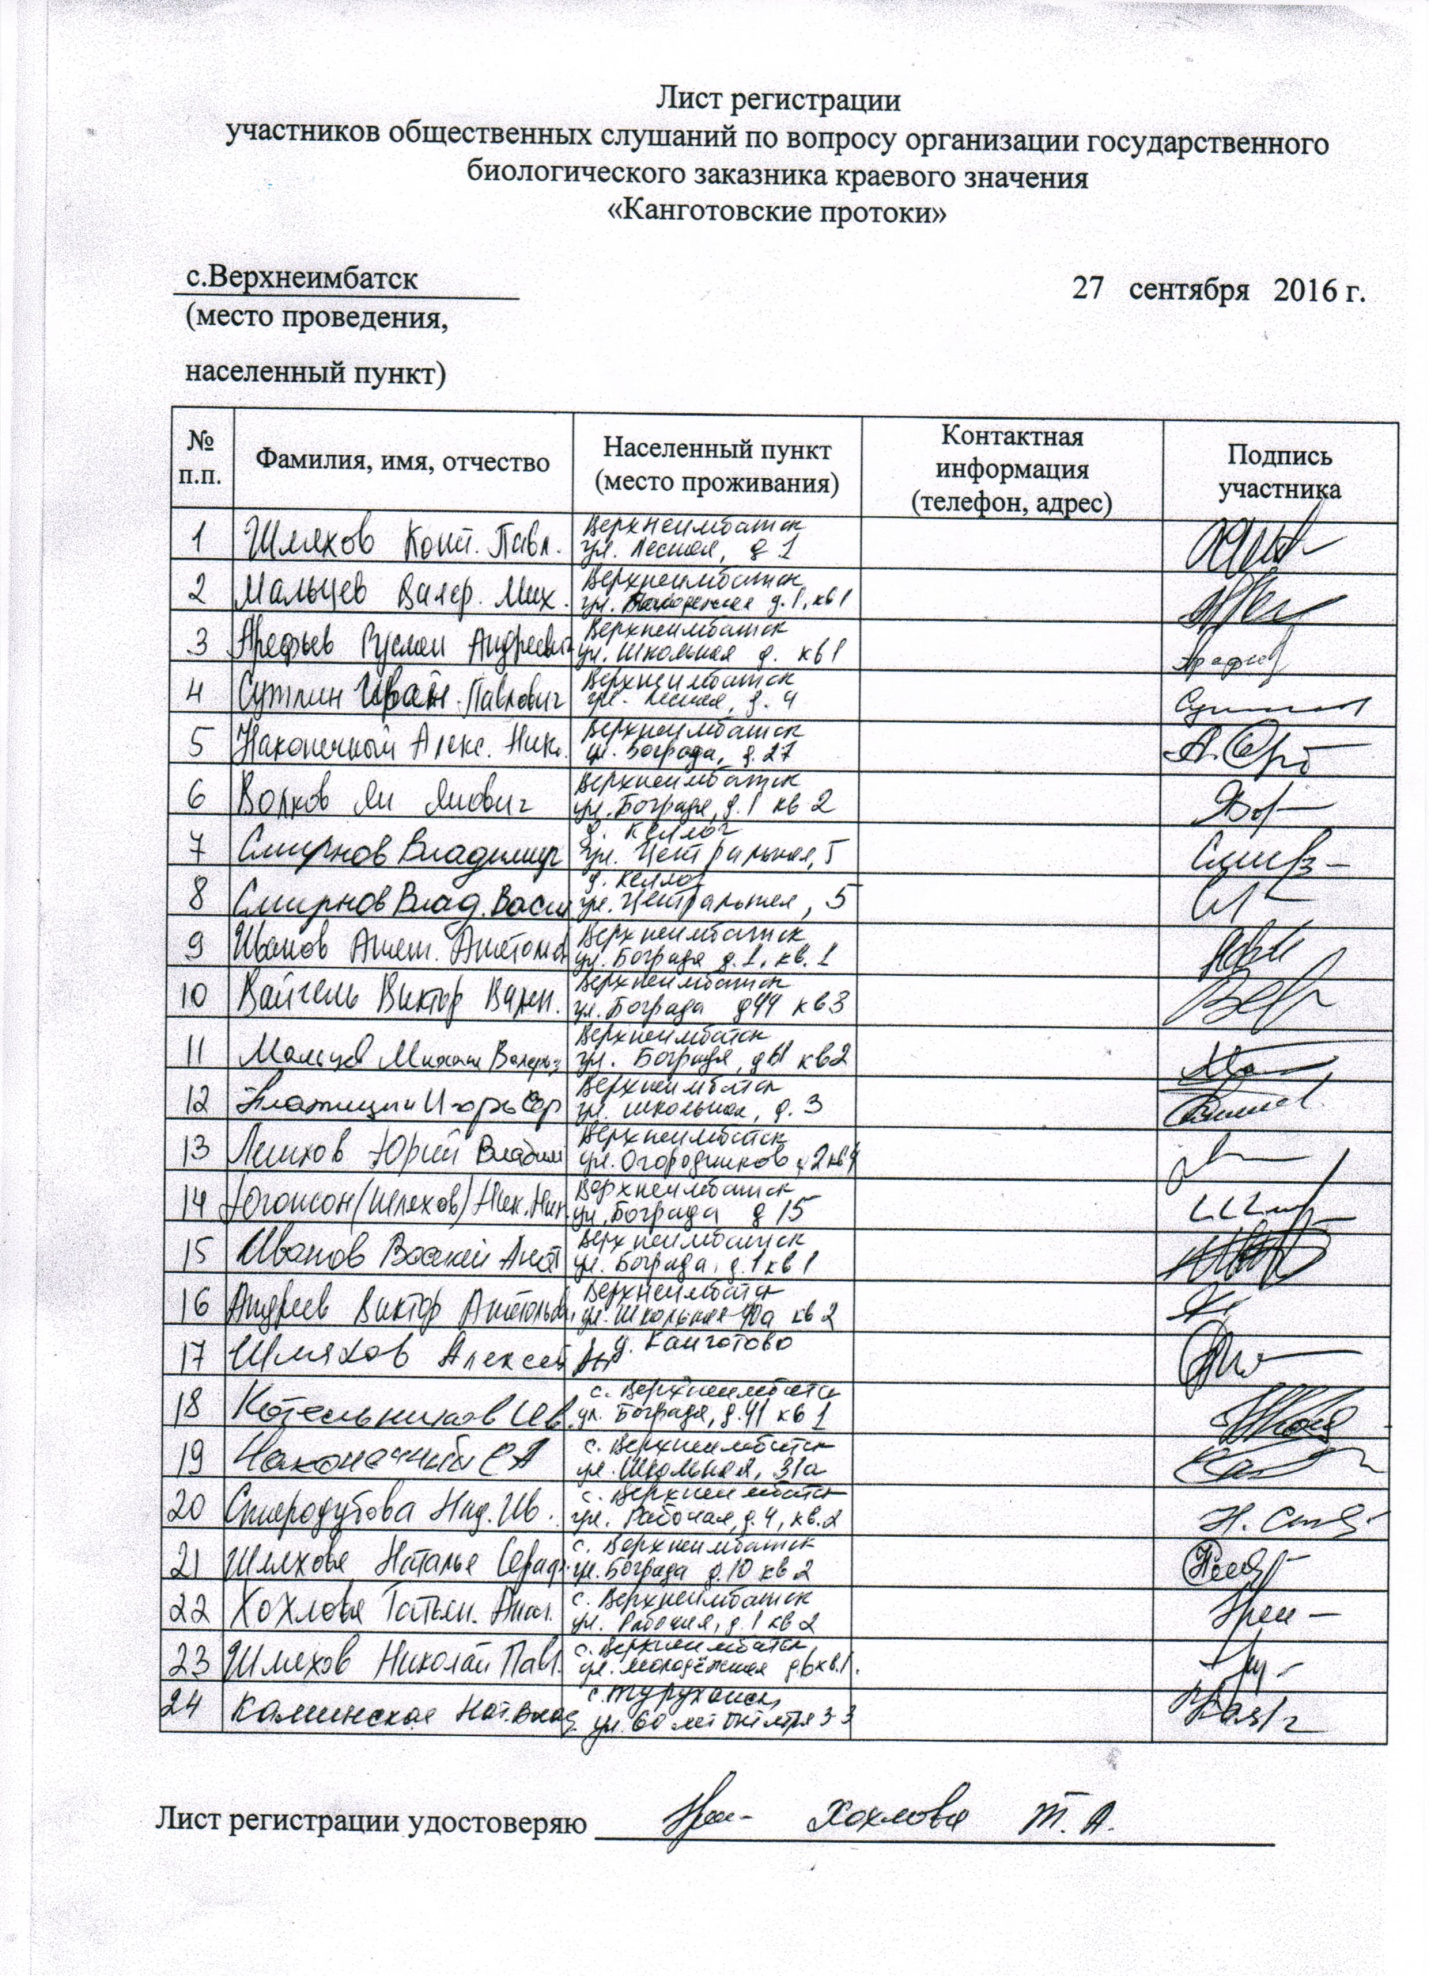 Лист регистрации
участников общественных слушаний по вопросу организации государственного
биологического заказника краевого значения
«Канготовские протоки»
с.Верхнеимбатск
27 сентября 2016 г.
(место проведения,
населенный пункт)
№ п.п.
Фамилия, имя, отчество
Населенный пункт (место проживания)
Контактная информация (телефон, адрес)
Подпись участника
1 Шляхов Конст. Павл. Верхнеимбатск
ул. Лесная, д 1
2 Мальцев Валер. Мих. Верхнеимбатск
ул. д. 1, кв 1
3 Арефьев Руслан Андреевич Верхнеимбатск
ул. Школьная д. кв 1
4 Сутлин Иван Павлович Верхнеимбатск
ул. Лесная, д. 4
5 Наконечный Алекс. Ник. Верхнеимбатск
ул. Бограда, д. 27
6 Волков Ян Янович Верхнеимбатск
ул. Бограда, д. 1 кв 2
7 Смирнов Владимир д. Келлог
ул. Центральная, 5
8 Смирнов Влад. Васи д. Келлог
ул. Центральная, 5
9 Иванов Анат. Верхнеимбатск
ул. Бограда д. 1, кв. 1
10 Вайгель Виктор Верхнеимбатск
ул. Бограда д44 кв3
11 Мальцев Михаил Валерь Верхнеимбатск
ул. Бограда, кв2
12 Игорь Верхнеимбатск
ул. Школьная, д. 3
13 Юрий Владим Верхнеимбатск
ул. Огородников 2 кв 4
14 (Шляхов) Ник. Верхнеимбатск
ул. Бограда д 15
15 Иванов Василий Анат Верхнеимбатск
ул. Бограда, д. 1 кв 1
16 Андреев Виктор Анатольев. Верхнеимбатск
ул. Школьная 40а кв 2
17 Шляхов Алексей д. Канготово
18 Котельников Ив. с. Верхнеимбатск
ул. Бограда, д. 41 кв 1
19 Наконечный С А с. Верхнеимбатск
ул. Школьная, 31а
20 Стародубова Над. Ив. с. Верхнеимбатск
ул. Рабочая, д. 4, кв. 2
21 Шляхова Наталья Сераф. с. Верхнеимбатск
ул. Бограда д. 10 кв 2
22 Хохлова Татьян. Анат. с. Верхнеимбатск
ул. Рабочая, д. 1 кв 2
23 Шляхов Николай Павл. с. Верхнеимбатск,
ул. Молодёжная д6кв.1.
24 Каминская Нат. Влад с. Туруханск,
ул. 60 лет Октября 33
Лист регистрации удостоверяю Хохлова Т. А.